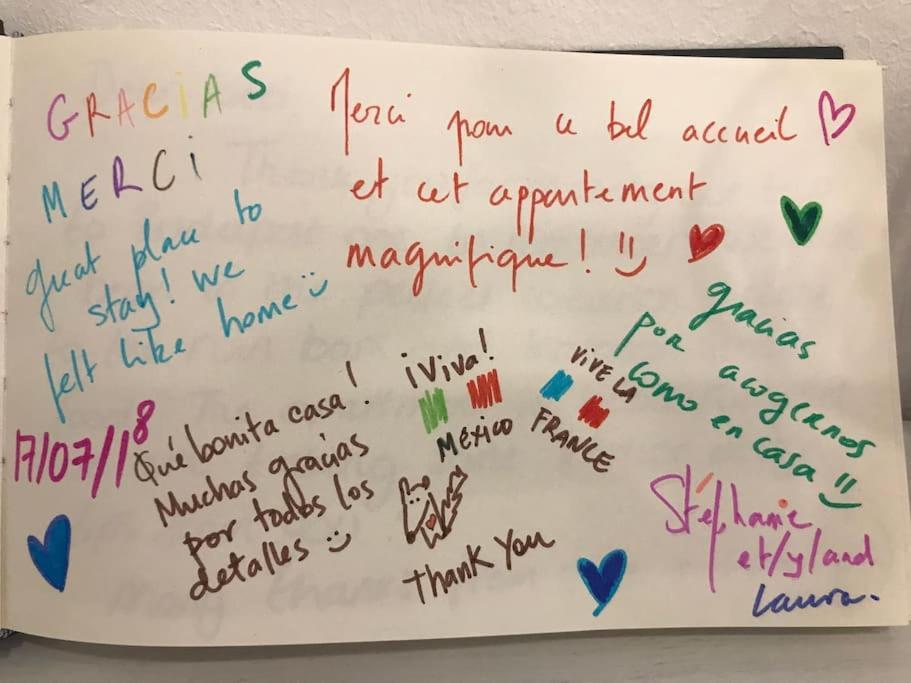 GRACIAS
MERCI
great place to
stay! we
felt like home
17/07/18
Merci pour ce bel accueil
et cet appartement
magnifique! :)
gracias
por acogernos
como en casa
¡Viva!
MÉXICO
VIVE LA
FRANCE
Qué bonita casa!
Muchas gracias
por todos los
detalles :)
Thank You
Stéphanie
et/y/and
Laura.